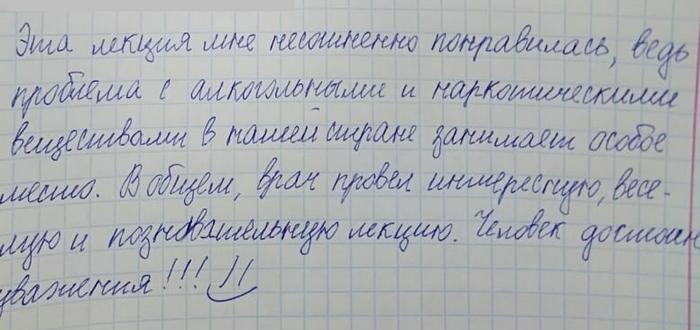 Эта лекция мне несомненно понравилась, ведь
проблема с алкогольными и наркотическими
веществами в нашей стране занимает особое
место. В общем, врач провел интересную, весе-
лую и познавательную лекцию. Человек достоин
уважения!!!